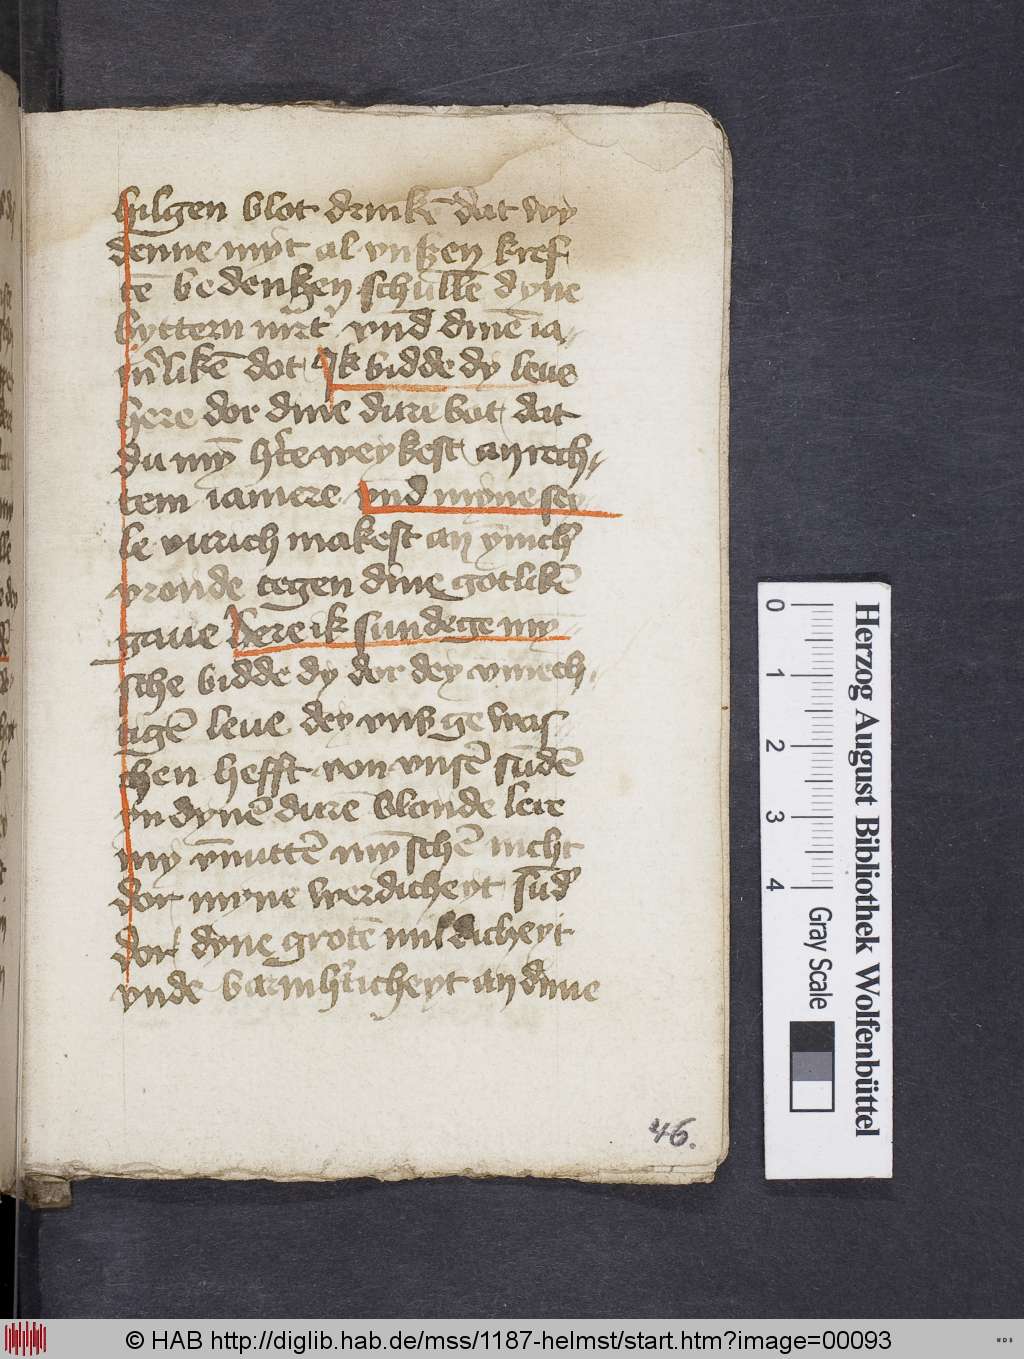 hilgen blot drinkē dat wy
denne myt al vnſzen kref
tē bedenkzen schullē dyne
byttern mrt' vnd dinē ia-
m'likē dot Ik bidde dy leue
here dor dine dure bot dat
du my h'te weykest an rech-
tem iamere vnd myne sey-
le vurich makest an ynich
vronde tegen dine gotlikē
gaue here ik sundege my-
sche bidde dy dor dey vmech-
tigē leue dey vns ge was-
chen hefft von vnsē sūdē
yn dynē durē blonde lere
my vnuttē myschē nicht
dor myne werdicheyt sūd'
dor dyne grotē mildicheyt
vnde barmh'ticheyt an dine
46.
0 1 2 3 4
Gray Scale
Herzog August Bibliothek Wolfenbüttel
© HAB http://diglib.hab.de/mss/1187-helmst/start.htm?image=00093
WDB